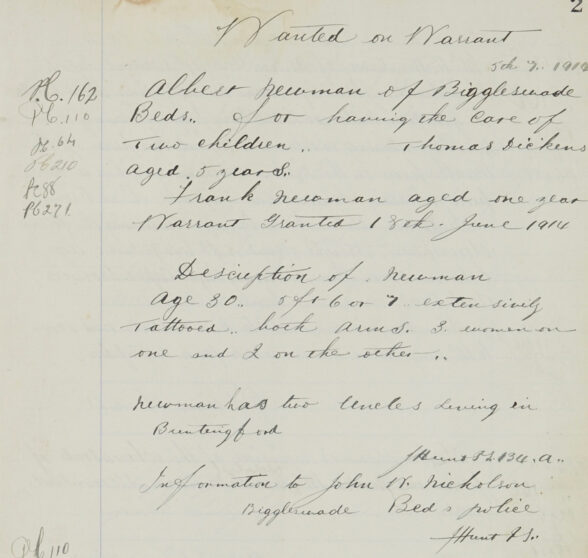 2
Wanted on Warrant
5th 7. 1914
Pc. 162
Pc. 110
Pc. 64
Pc 210
Pc 88
Pc 271
Albert Newman of Biggleswade
Beds.. for having the care of
Two children.. Thomas Dickens
aged 5 years.
Frank Newman aged one year
Warrant Granted 18th June 1914
Desciption of Newman
Age 30.. 5ft 6 or 7 extensively
Tattooed.. both Arms. 3 women on
one and 2 on the other..
Newman has two Uncles Living in
Buntingford
J Hunt
Information to John W. Nicholson
Biggleswade Beds police
J Hunt
Pc 110